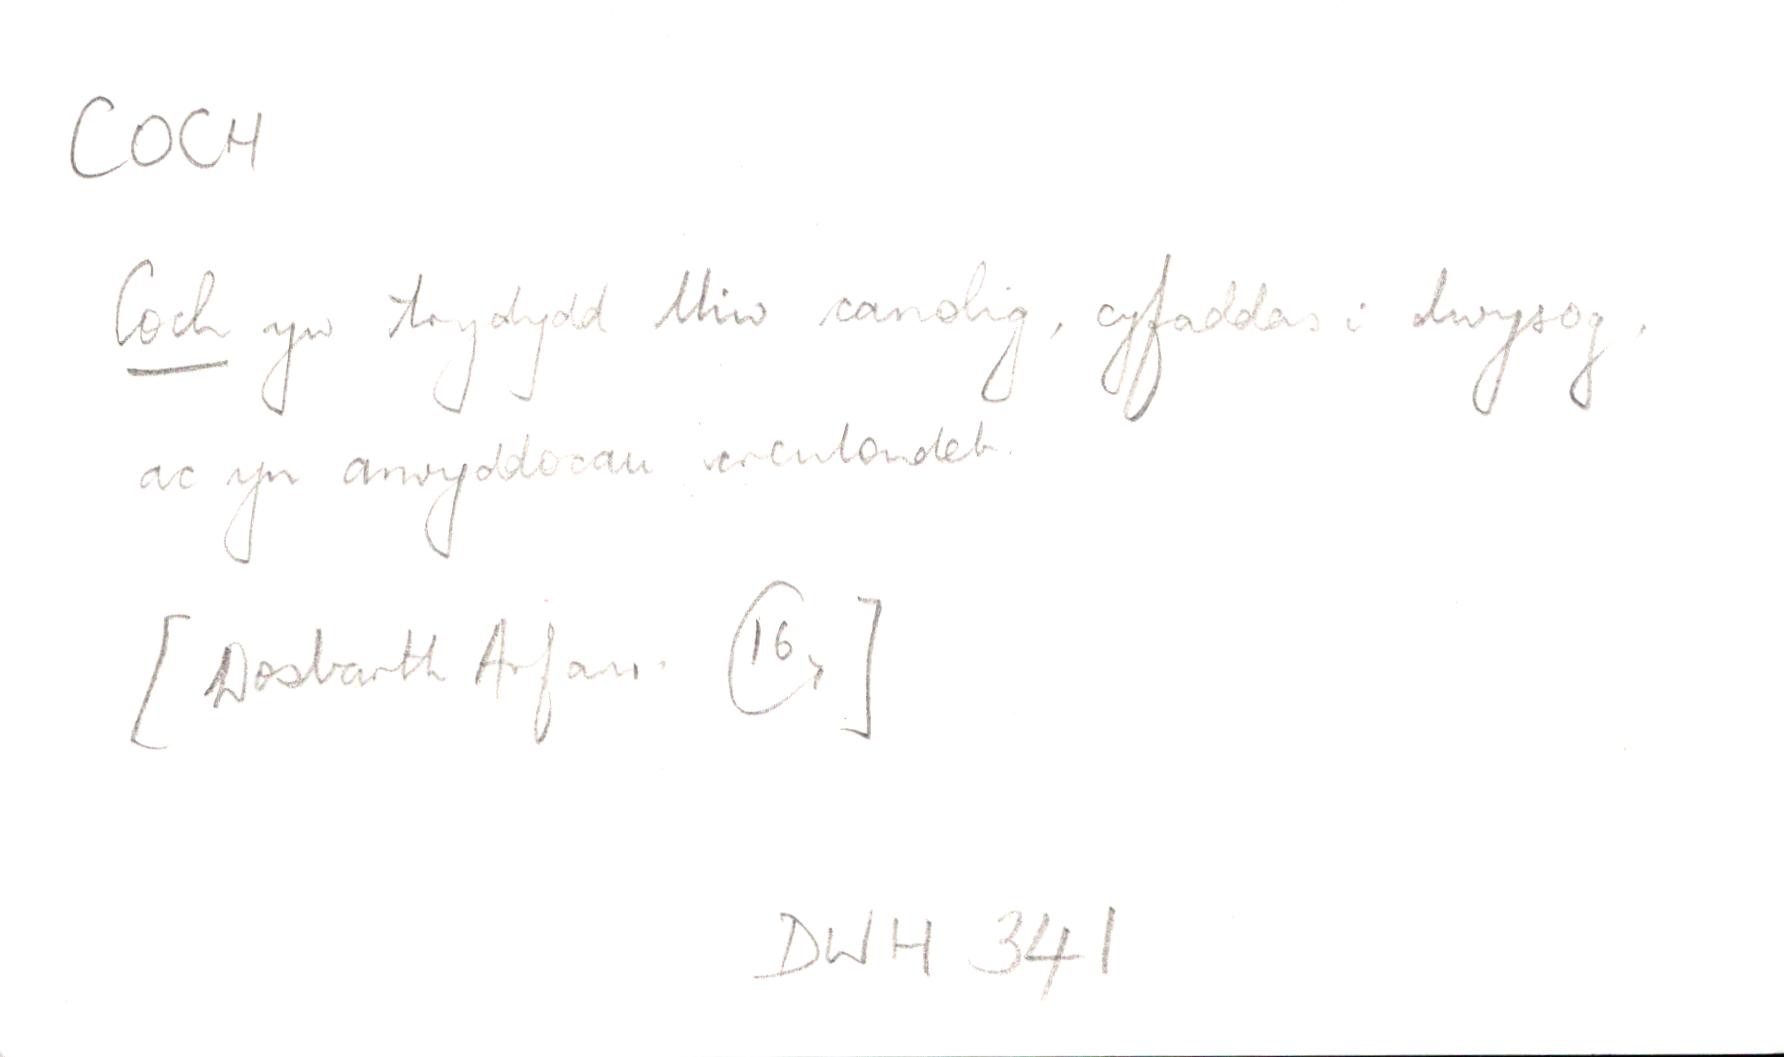 COCH
Coch yw trydydd lliw canolig, cyfaddas i dwysog,
ac yn arwyddocau creulondeb.
[Dosbarth Arfau. (16,]
DWH 341